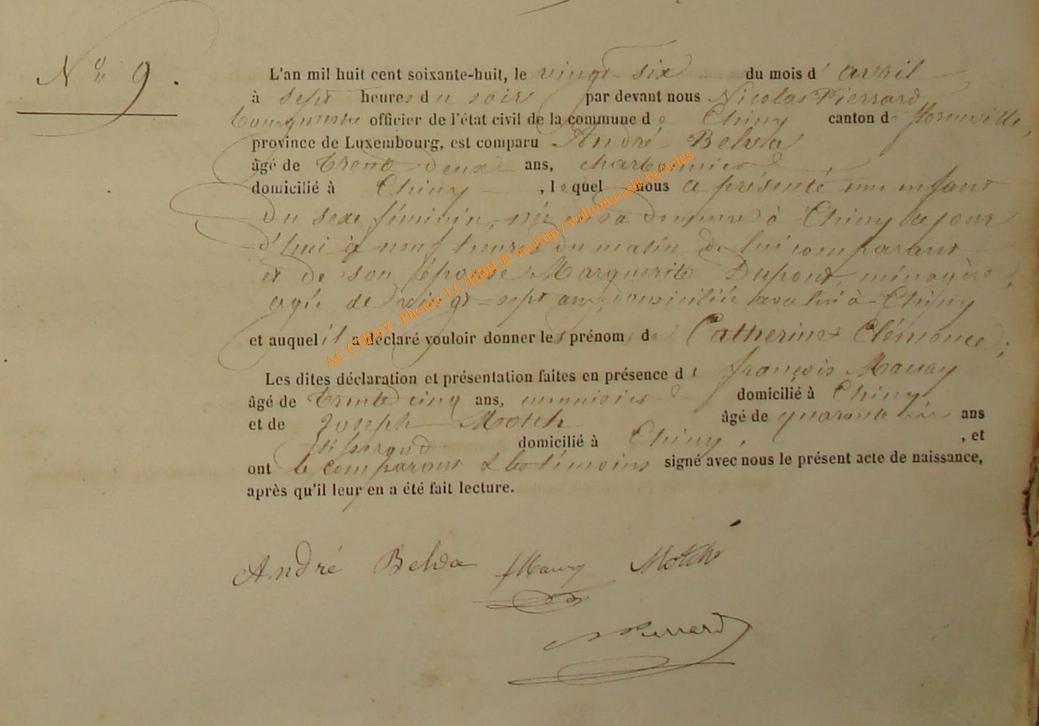 N° 9.
L'an mil huit cent soixante-huit, le vingt six du mois d' avril
à sept heures du soir par devant nous Nicolas Pierrard
bourgmestre officier de l'état civil de la commune de Chiny canton de florenville,
province de Luxembourg, est comparu André Belva
âgé de trente deux ans, charbonnier
domicilié à Chiny, lequel nous a présenté une enfant
du sexe féminin, née sa demeure à Chiny ce jour
d'hui à neuf heures du matin de lui comparant
et de son épouse Marguerite Dupont, ménagère,
agée de vingt-sept ans, domiciliée avec lui à Chiny
et auquel il a déclaré vouloir donner les prénoms de Catherine Clémence;
Les dites déclaration et présentation faites en présence de françois Maury
âgé de trente cinq ans, menuisier domicilié à Chiny,
et de Joseph Motch âgé de quarante ans
tisserand domicilié à Chiny, , et
ont le comparant & les témoins signé avec nous le présent acte de naissance,
après qu'il leur en a été fait lecture.
André Belva fMaury Motché
NPierrard
ACCURNY- Photos